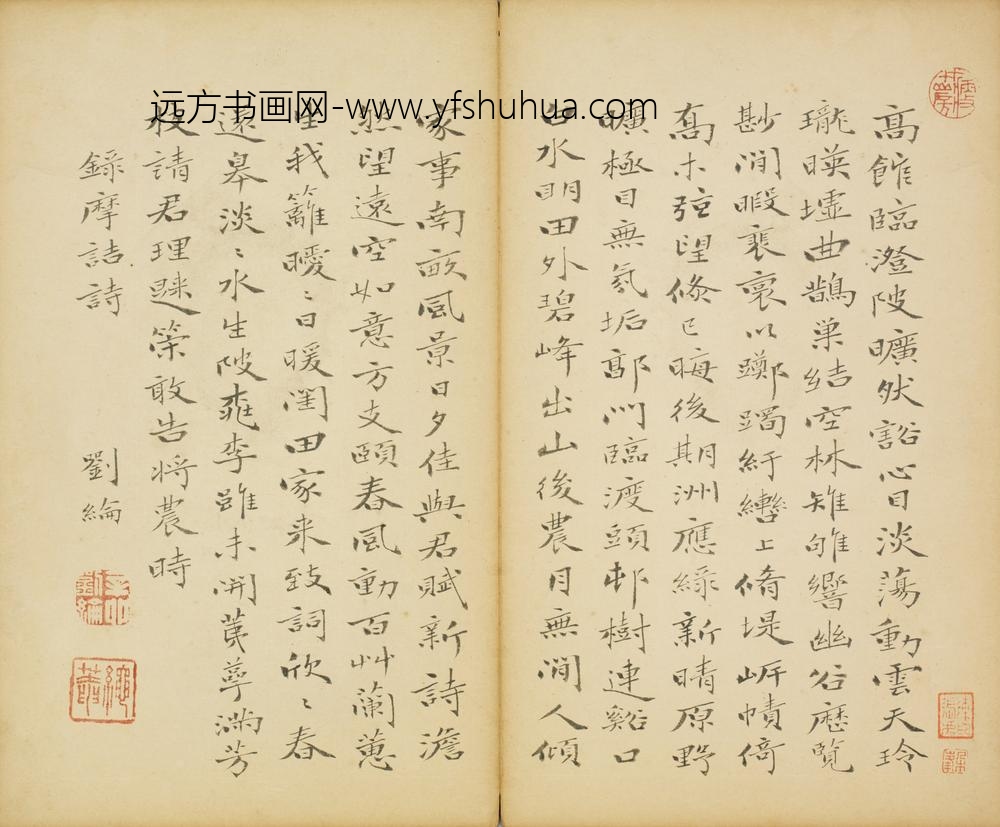 远方书画网-www.yfshuhua.com
高館臨澄陂曠然豁心目淡蕩動雲天玲
瓏暎墟曲鵲巢結空林雉雊響幽谷歷覽
尠閒暇裵褱以躑躅紆轡上脩堤岸幘倚
喬木弦望倐已晦後期洲應綠新晴原野
曠極目無氛垢郭門臨渡頭邨樹連谿口
白水明田外碧峰出山後農月無閒人傾
家事南畝風景日夕佳與君賦新詩澹
然望遠空如意方支頤春風動百艸蘭蕙
生我籬曖〻日暖閨田家来致詞欣〻春
還皋淡〻水生陂桃李雖未開荑萼滿芳
枝請君理還策敢告將農時
錄摩詰詩 劉綸